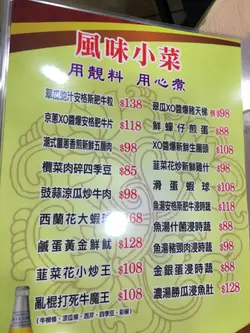 風味小菜
用靚料 用心煮
翠瓜鮑汁安格斯肥牛粒 $138
京蔥XO醬爆安格斯肥牛片 $118
$98
欖菜肉碎四季豆 $85
豉蒜涼瓜炒牛肉 $98
西蘭花大蝦球 $168
鹹蛋黃金鮮魷 $128
韮菜花小炒王 $108
亂棍打死牛魔王 $108
翠瓜XO醬爆豬天梯 $98
鮮蠔仔煎蛋 $88
XO醬炒新鮮生腸 $108
韮菜花炒新鮮雞什 $98
滑蛋蝦球 $108
魚湯安格斯肥牛浸時蔬 $118
魚湯什菌浸時蔬 $98
魚湯豬頸肉浸時蔬 $98
金銀蛋浸時蔬 $88
濃湯勝瓜浸魚肚 $128